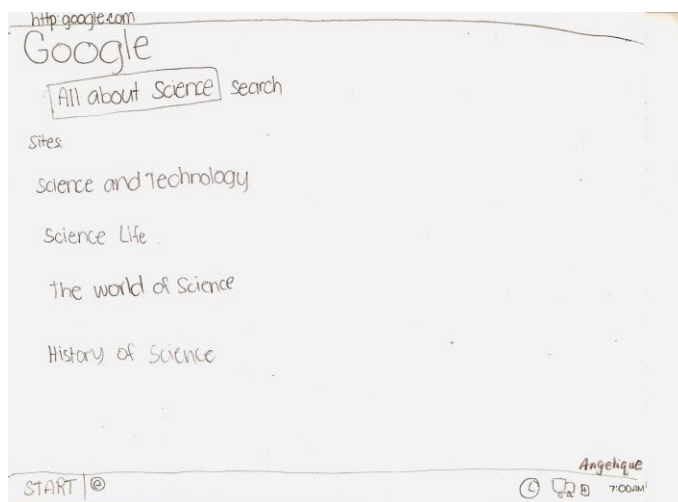 http:google.com
Google
All about Science search
Sites:
Science and Technology
Science Life
The world of Science
History of Science
Angelique
START @ 7:00AM